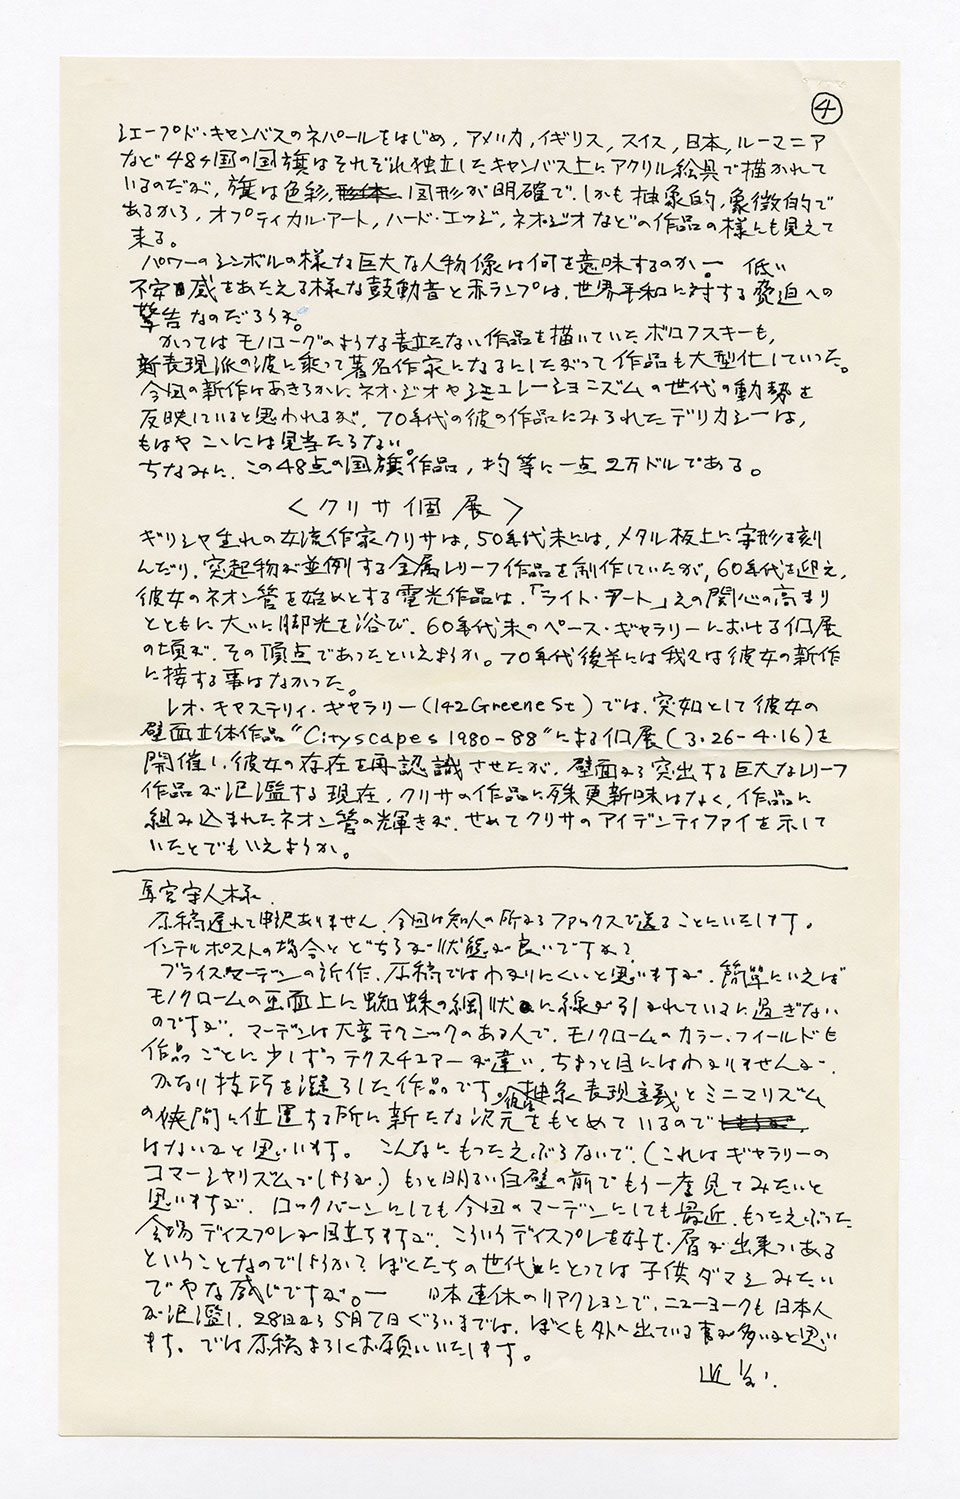 ④
シェープド・キャンバスのネパールをはじめ，アメリカ，イギリス，スイス，日本，ルーマニア
など48ヶ国の国旗はそれぞれ独立したキャンバス上にアクリル絵具で描かれて
いるのだが，旗は色彩，形体 図形が明確で，しかも抽象的，象徴的で
あるから，オプティカル・アート，ハード・エッジ，ネオジオなどの作品の様にも見えて
来る。
パワーのシンボルの様な巨大な人物像は何を意味するのか ー 低い
不安感をあたえる様な鼓動音と赤ランプは，世界平和に対する脅迫への
警告なのだろうか。
かつてはモノローグのような目立たない作品を描いていたボロフスキーも，
新表現派の波に乗って著名作家になるにしたがって作品も大型化していった。
今回の新作はあきらかにネオ・ジオやシミュレーショニズムの世代の動勢を
反映していると思われるが，70年代の彼の作品にみられたデリカシーは，
もはやここには見当たらない。
ちなみに，この48点の国旗作品，均等に一点2万ドルである。
＜クリサ個展＞
ギリシャ生れの女流作家クリサは，50年代末には，メタル板上に字形を刻
んだり，突起物が並例する金属レリーフ作品を制作していたが，60年代を迎え，
彼女のネオン管を始めとする電光作品は，「ライト・アート」えの関心の高まり
とともに大いに脚光を浴び，60年代末のペース・ギャラリーにおける個展
の頃が，その頂点であったといえようか。70年代後半には我々は彼女の新作
に接する事はなかった。
レオ・キャステリィ・ギャラリー（142 Greene St）では，突如として彼女の
壁面立体作品“Cityscapes 1980-88”による個展（3.26-4.16）を
開催し，彼女の存在を再認識させたが，壁面から突出する巨大なレリーフ
作品が氾濫する現在，クリサの作品に殊更新味はなく，作品に
組み込まれたネオン管の輝きが，せめてクリサのアイデンティファイを示して
いたとでもいえようか。
馬宮守人様．
原稿遅れて申訳ありません．今回は知人の所からファックスで送ることにいたします。
インテルポストの場合とどちらが状態が良いですか？
ブライス・マーデンの近作，原稿ではわかりにくいと思いますが，簡単にいえば
モノクロームの画面上に蜘蛛の網状に線が引かれているに過ぎない
のですが，マーデンは大変テクニックのある人で，モノクロームのカラー・フィールドも
作品ごとに少しずつテクスチュアーが違い，ちょっと目にはわかりませんが，
かなり技巧を凝らした作品です。抽象表現主義とミニマリズム
の狭間に位置する所に新たな次元をもとめているので
はないかと思います。こんなにもったえぶらないで，（これはギャラリーの
コマーシャリズムでしょうが，）もっと明るい白壁の前でもう一度見てみたいと
思いますが，ロックバーンにしても今回のマーデンにしても最近，もったえぶった
会場ディスプレが目立ちますが，こういうディスプレを好む層が出来つつある
ということなのでしょうか？ぼくたちの世代にとっては子供ダマシみたい
でやな感じですが。ー 日本連休のリアクションで，ニューヨークも日本人
が氾濫し，28日から5月7日ぐらいまでは，ぼくも外へ出ている事が多いかと思い
ます。では原稿よろしくお願いいたします。